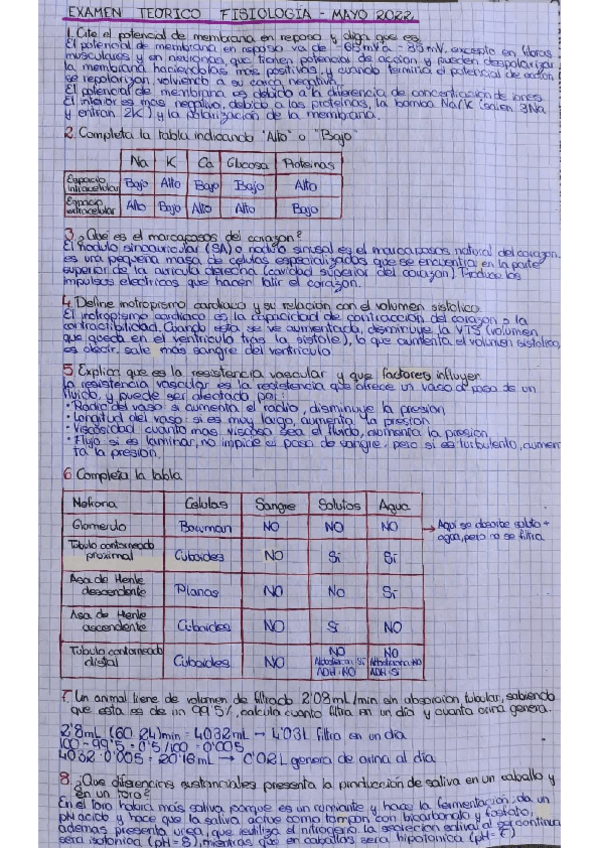 EXAMEN TEORICO FISIOLOGIA - MAYO 2022
1. Cite el potencial de membrana en reposo y diga que es.
El potencial de membrana en reposo va de -65mV a -85mV, excepto en fibras
musculares y en neuronas, que tienen potencial de accion y pueden despolarizar
la membrana haciendolas mas positivas, y cuando termina el potencial de accion
se repolarizan, volviendo a su carga negativa.
El potencial de membrana es debido a la diferencia de concentracion de iones.
El interior es mas negativo, debido a las proteinas, la bomba Na/K (salen 3Na
y entran 2K) y la polarizacion de la membrana.
2. Completa la tabla indicando "Alto" o "Bajo"
Na K Ca Glucosa Proteinas
Espacio intracelular Bajo Alto Bajo Bajo Alto
Espacio extracelular Alto Bajo Alto Alto Bajo
3. ¿Que es el marcapasos del corazon?
El nodulo sinoauricular (SA) o nodulo sinusal es el marcapasos natural del corazon.
es una pequeña masa de celulas especializadas que se encuentra en la parte
superior de la auricula derecha (cavidad superior del corazon). Produce los
impulsos electricos que hacen latir el corazon.
4. Define inotropismo cardiaco y su relación con el volumen sistolico
El inotropismo cardiaco es la capacidad de contraccion del corazon o la
contractibilidad. Cuando esta se ve aumentada, disminuye la VTS (volumen
que queda en el ventriculo tras la sistole), lo que aumenta el volumen sistolico,
es decir, sale mas sangre del ventriculo.
5 Explica que es la resistencia vascular y que factores influyen
La resistencia vascular es la resistencia que ofrece un vaso al paso de un
fluido, y puede ser afectada por:
• Radio del vaso: si aumenta el radio, disminuye la presion
• Longitud del vaso: si es muy largo, aumenta la presion
• Viscosidad: cuanto mas viscoso sea el fluido, aumenta la presion.
• Flujo: si es laminar, no impide el paso de sangre, pero si es turbulento, aumen
ta la presion.
6 Completa la tabla
Nefrona Celulas Sangre Solutos Agua
Glomerulo Bowman NO NO NO → Aqui se absorbe soluto + agua, pero no se filtra
Tubulo contorneado proximal Cuboides NO Si Si
Asa de Henle descendente Planas NO No Si
Asa de Henle ascendente Cuboides NO Si NO
Tubulo contorneado distal Cuboides NO NO NO
Aldosterona: Si Aldosterona: NO
ADH: NO ADH: Si
7. Un animal tiene de volumen de filtrado 2'08mL/min en absorcion tubular, sabiendo
que esta es de un 99'5%, calcula cuanto filtra en un dia y cuanta orina genera.
2'8mL (60·24)min = 4032mL → 4'03L filtra en un dia
100-99'5 = 0'5/100 = 0'005
4032·0'005 = 20'16mL → 0'02L genera de orina al dia.
8 ¿Que diferencias sustanciales presenta la producción de saliva en un caballo y
en un toro?
En el toro habrá más saliva porque es un rumiante y hace la fermentación, da un
pH acido y hace que la saliva actue como tampon con bicarbonato y fosfato,
ademas presenta urea, que reutiliza el nitrogeno. la secrecion salival al ser continua
sera isotonica (pH=8), mientras que en caballos sera hipotonica